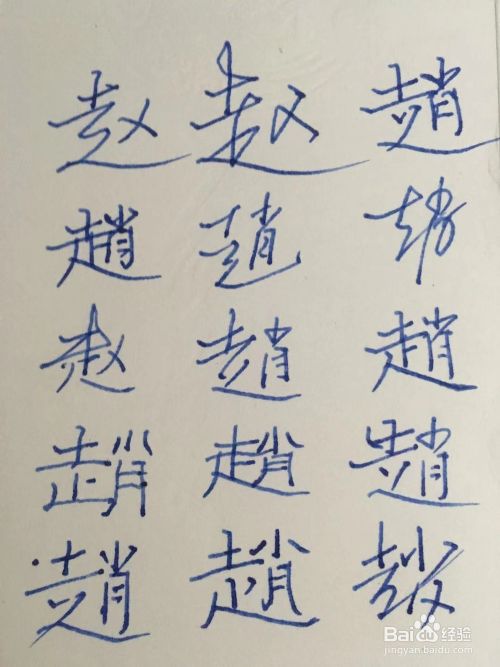 赵 赵 趙
趙 趙 趙
赵 趙 趙
趙 趙 趙
趙 趙
Baidu经验
jingyan.baidu.com